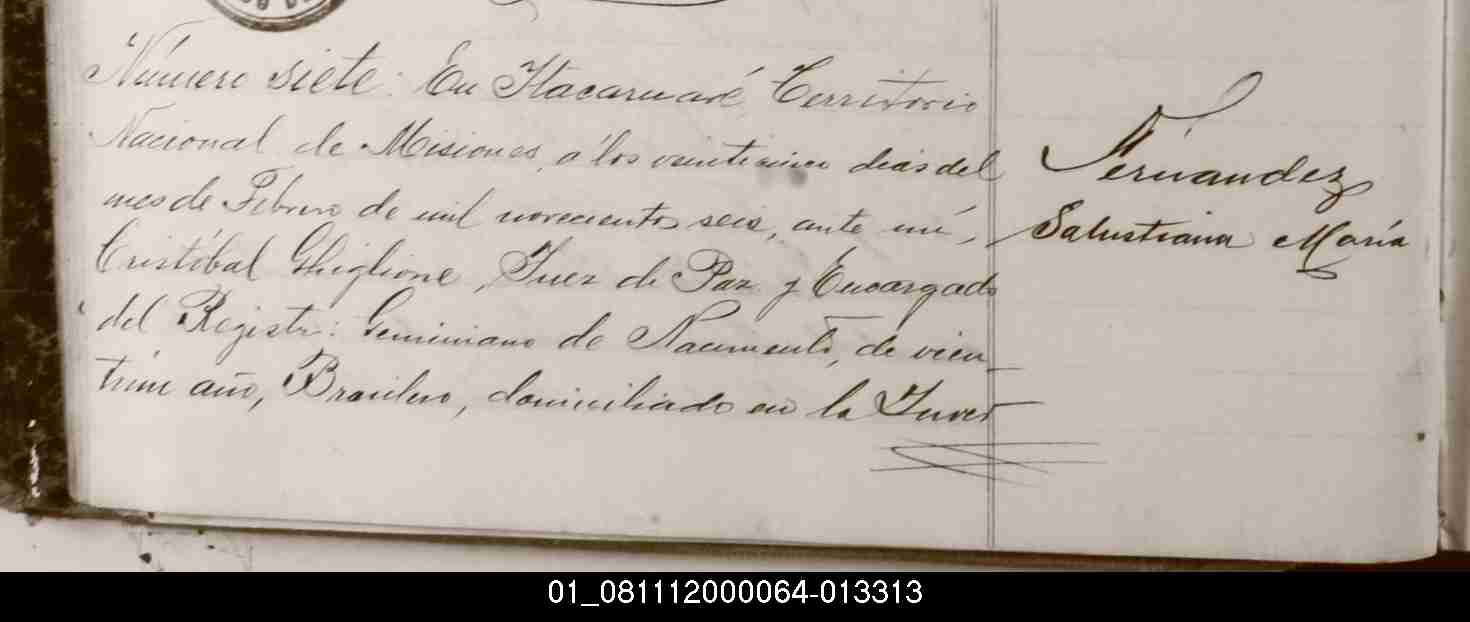 Número siete: En Itacaruaré, Territorio
Nacional de Misiones, á los veinticinco dias del
mes de Febrero de mil novecientos seis, ante mi,
Cristóbal Ghiglione, Juez de Paz y Encargado
del Registro: Geminiano de Nacimento, de vein
año, Brasilero, domiciliado en la
Fernandez
Salustiana María
01_081112000064-013313